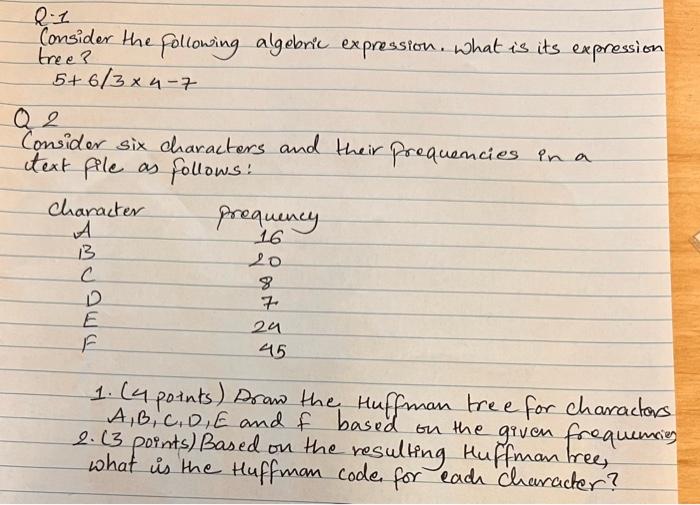 Q.1
Consider the following algebric expression. what is its expression
tree?
5+6/3×4-7
Q 2
Consider six characters and their frequencies in a
text file as follows:
character frequency
A 16
B 20
C 8
D 7
E 24
F 45
1. (4 points) Draw the Huffman tree for characters
A,B,C,D,E and f based on the given frequencies
2. (3 points) Based on the resulting Huffman tree,
what is the Huffman code, for each character?